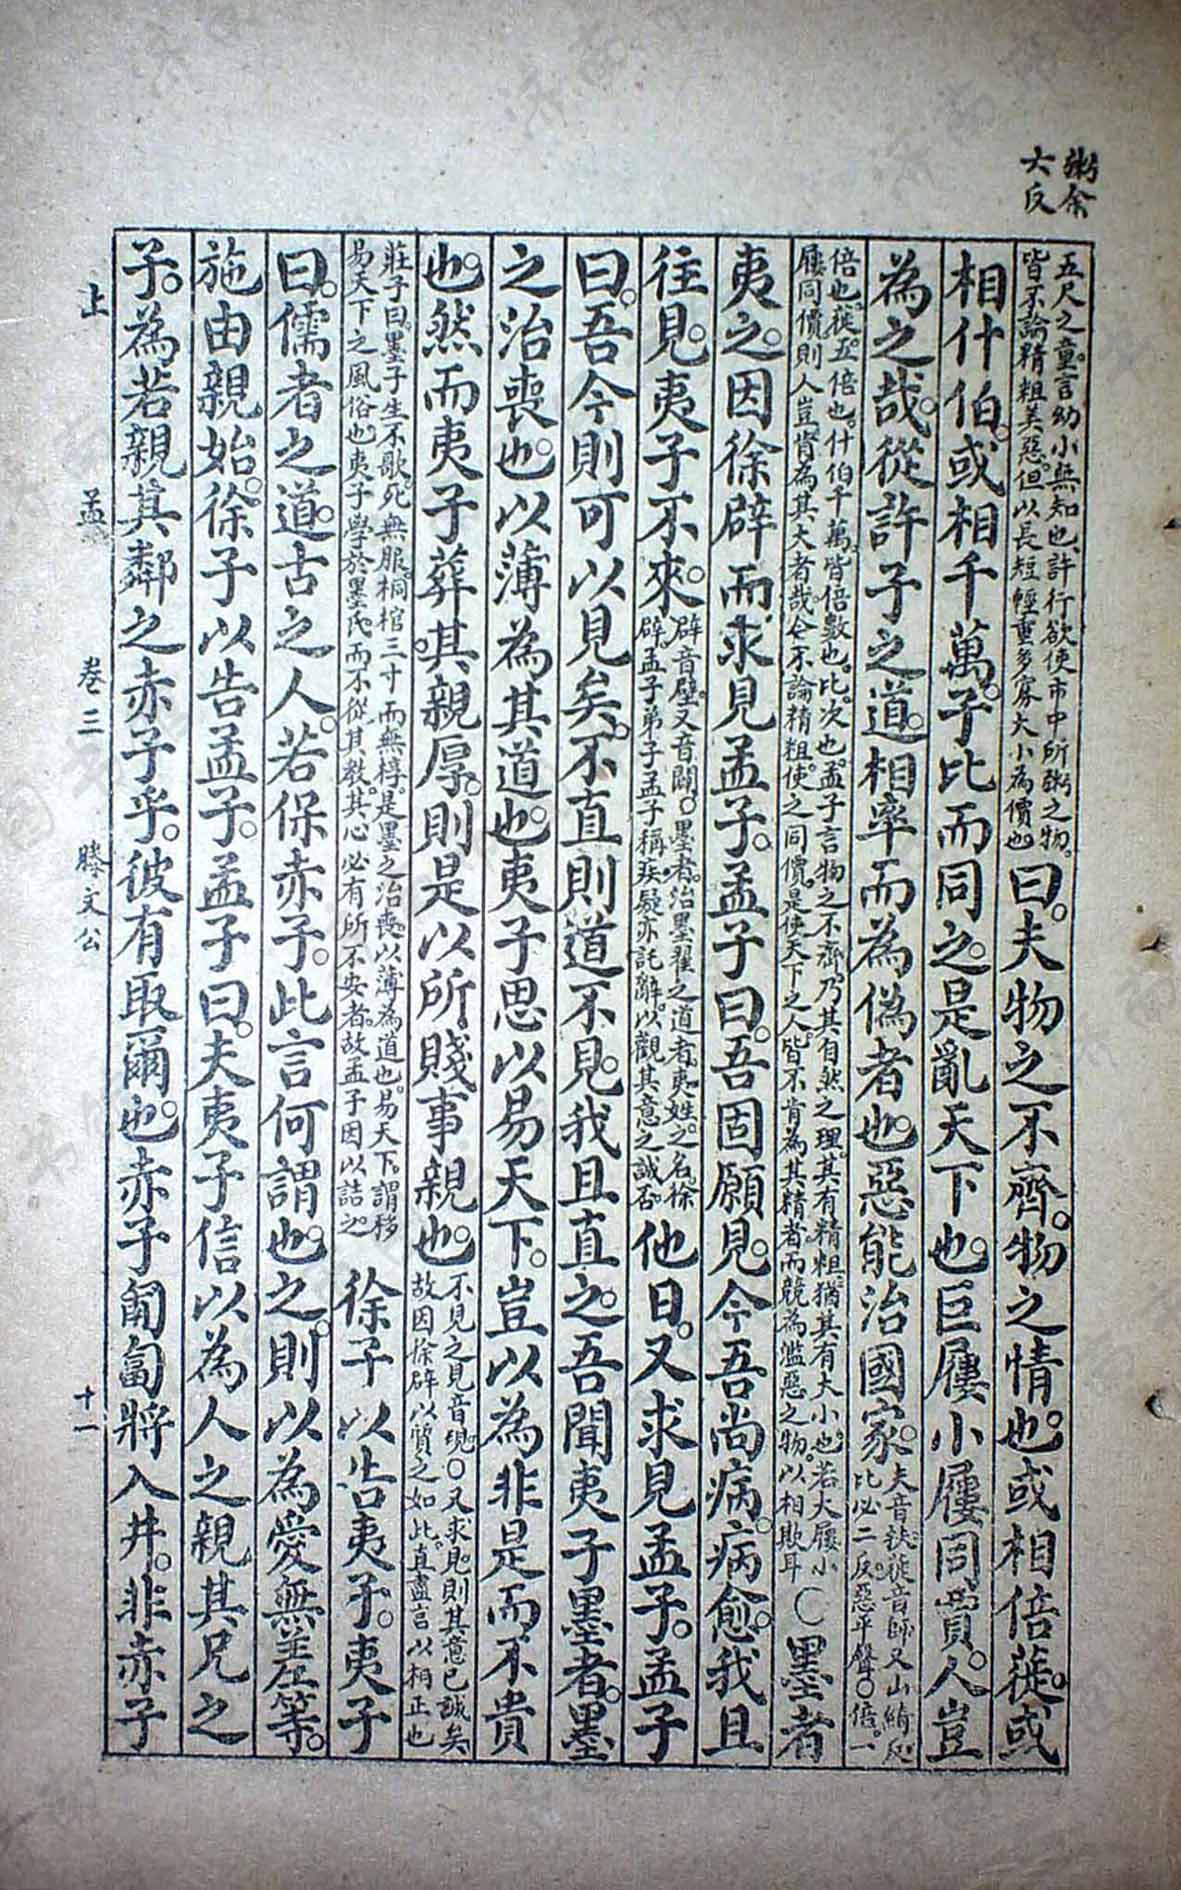 粥余
六反
五尺之童。言幼小無知也、許行欲使市中所粥之物。
皆不論精粗美惡。但以長短輕重多寡大小為價也
曰。夫物之不齊。物之情也。或相倍蓰。或
相什伯。或相千萬。子比而同之。是亂天下也。巨屨小屨同賈。人豈
為之哉。從許子之道。相率而為偽者也。惡能治國家。
夫音扶。蓰音師又山綺反。
比必二反。惡平聲○倍。一
倍也。蓰。五倍也。什伯千萬。皆倍數也。比。次也。孟子言物之不齊。乃其自然之理。其有精粗。猶其有大小也。若大屨小
屨同價。則人豈肯為其大者哉。今不論精粗。使之同價。是使天下之人。皆不肯為其精者。而競為濫惡之物。以相欺耳
○墨者
夷之。因徐辟而求見孟子。孟子曰。吾固願見。今吾尚病。病愈。我且
往見。夷子不來。
辟音壁。又音闢。○墨者。治墨翟之道者。夷。姓。之。名。徐
辟。孟子弟子。孟子稱疾。疑亦託辭。以觀其意之誠否。
他日。又求見孟子。孟子
曰。吾今則可以見矣。不直則道不見。我且直之。吾聞夷子墨者。墨
之治喪也。以薄為其道也。夷子思以易天下。豈以為非是而不貴
也。然而夷子葬其親厚。則是以所賤事親也。
不見之見音現。○又求見。則其意已誠矣
故因徐辟以質之如此。直。盡言以相正也
莊子曰。墨子生不歌。死無服。桐棺三寸而無椁。是墨之治喪。以薄為道也。易天下。謂移
易天下之風俗也。夷子學於墨氏。而不從其教。其心必有所不安者。故孟子因以詰之。
徐子以告夷子。夷子
曰。儒者之道。古之人。若保赤子。此言何謂也。之則以為愛無差等。
施由親始。徐子以告孟子。孟子曰。夫夷子信以為人之親其兄之
子。為若親其鄰之赤子乎。彼有取爾也。赤子匍匐將入井。非赤子
上 孟 卷三 滕文公 十一